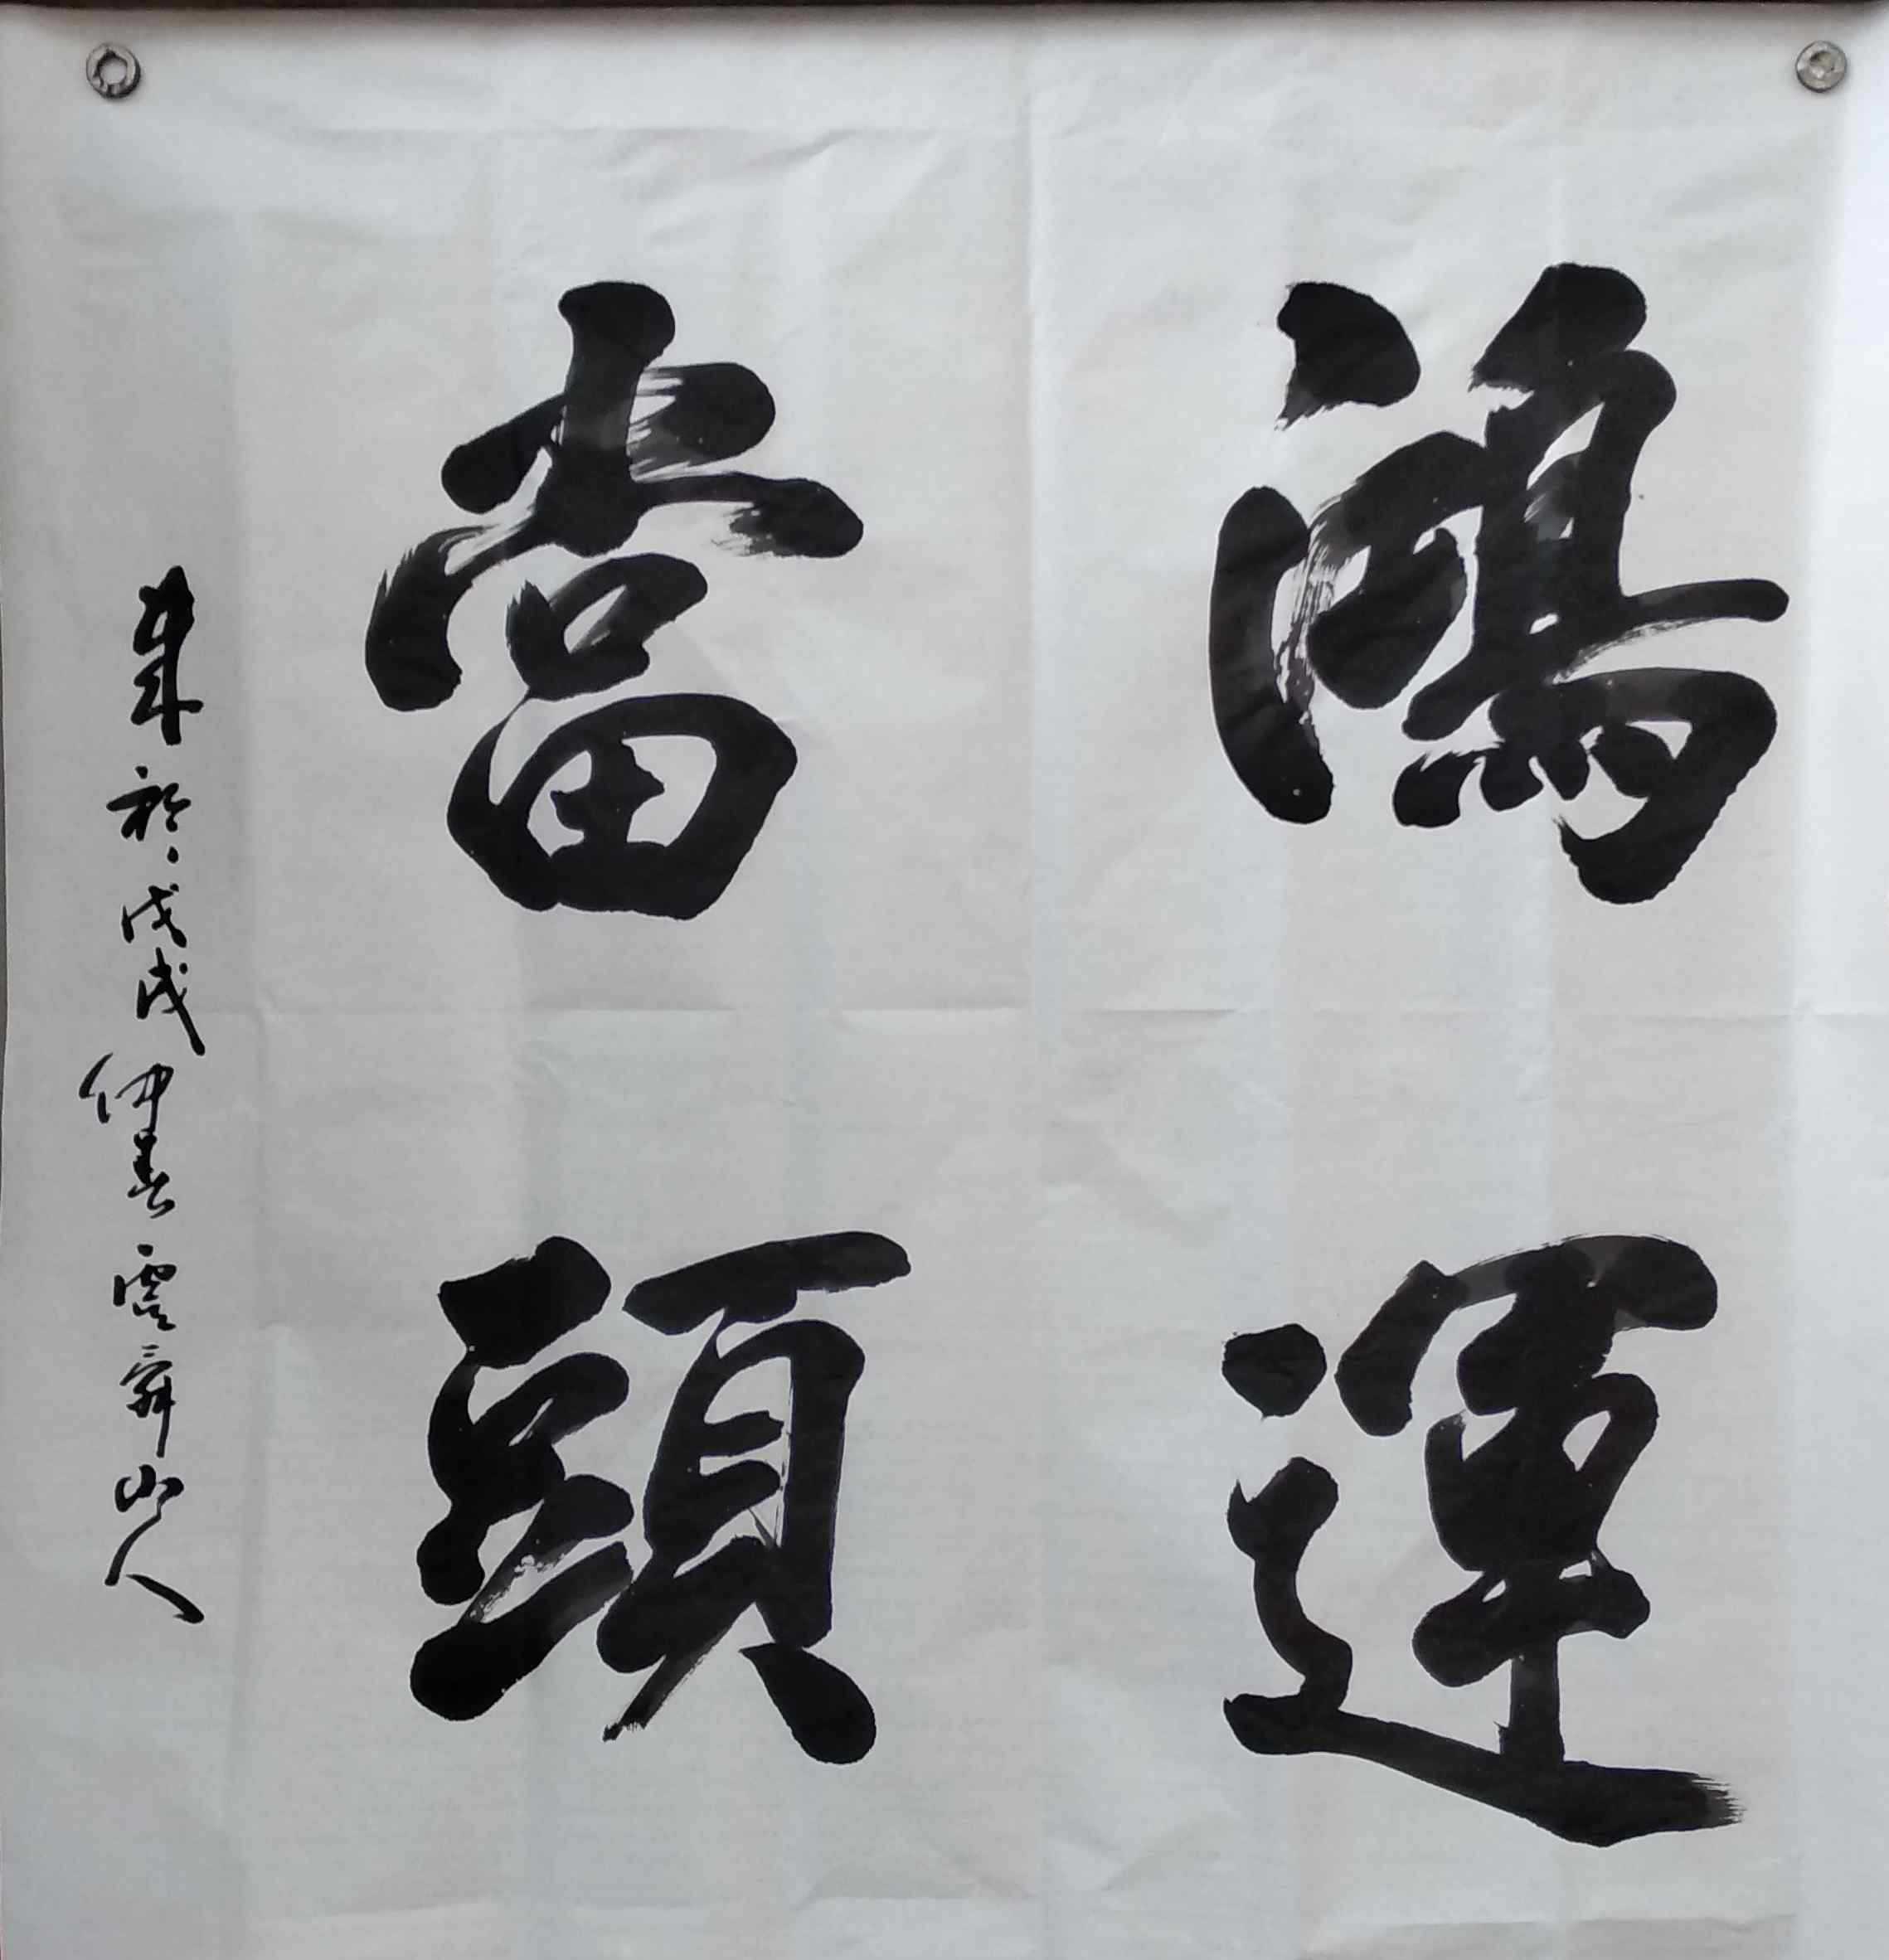 鴻運
當頭
於戊戌仲春雲舜山人